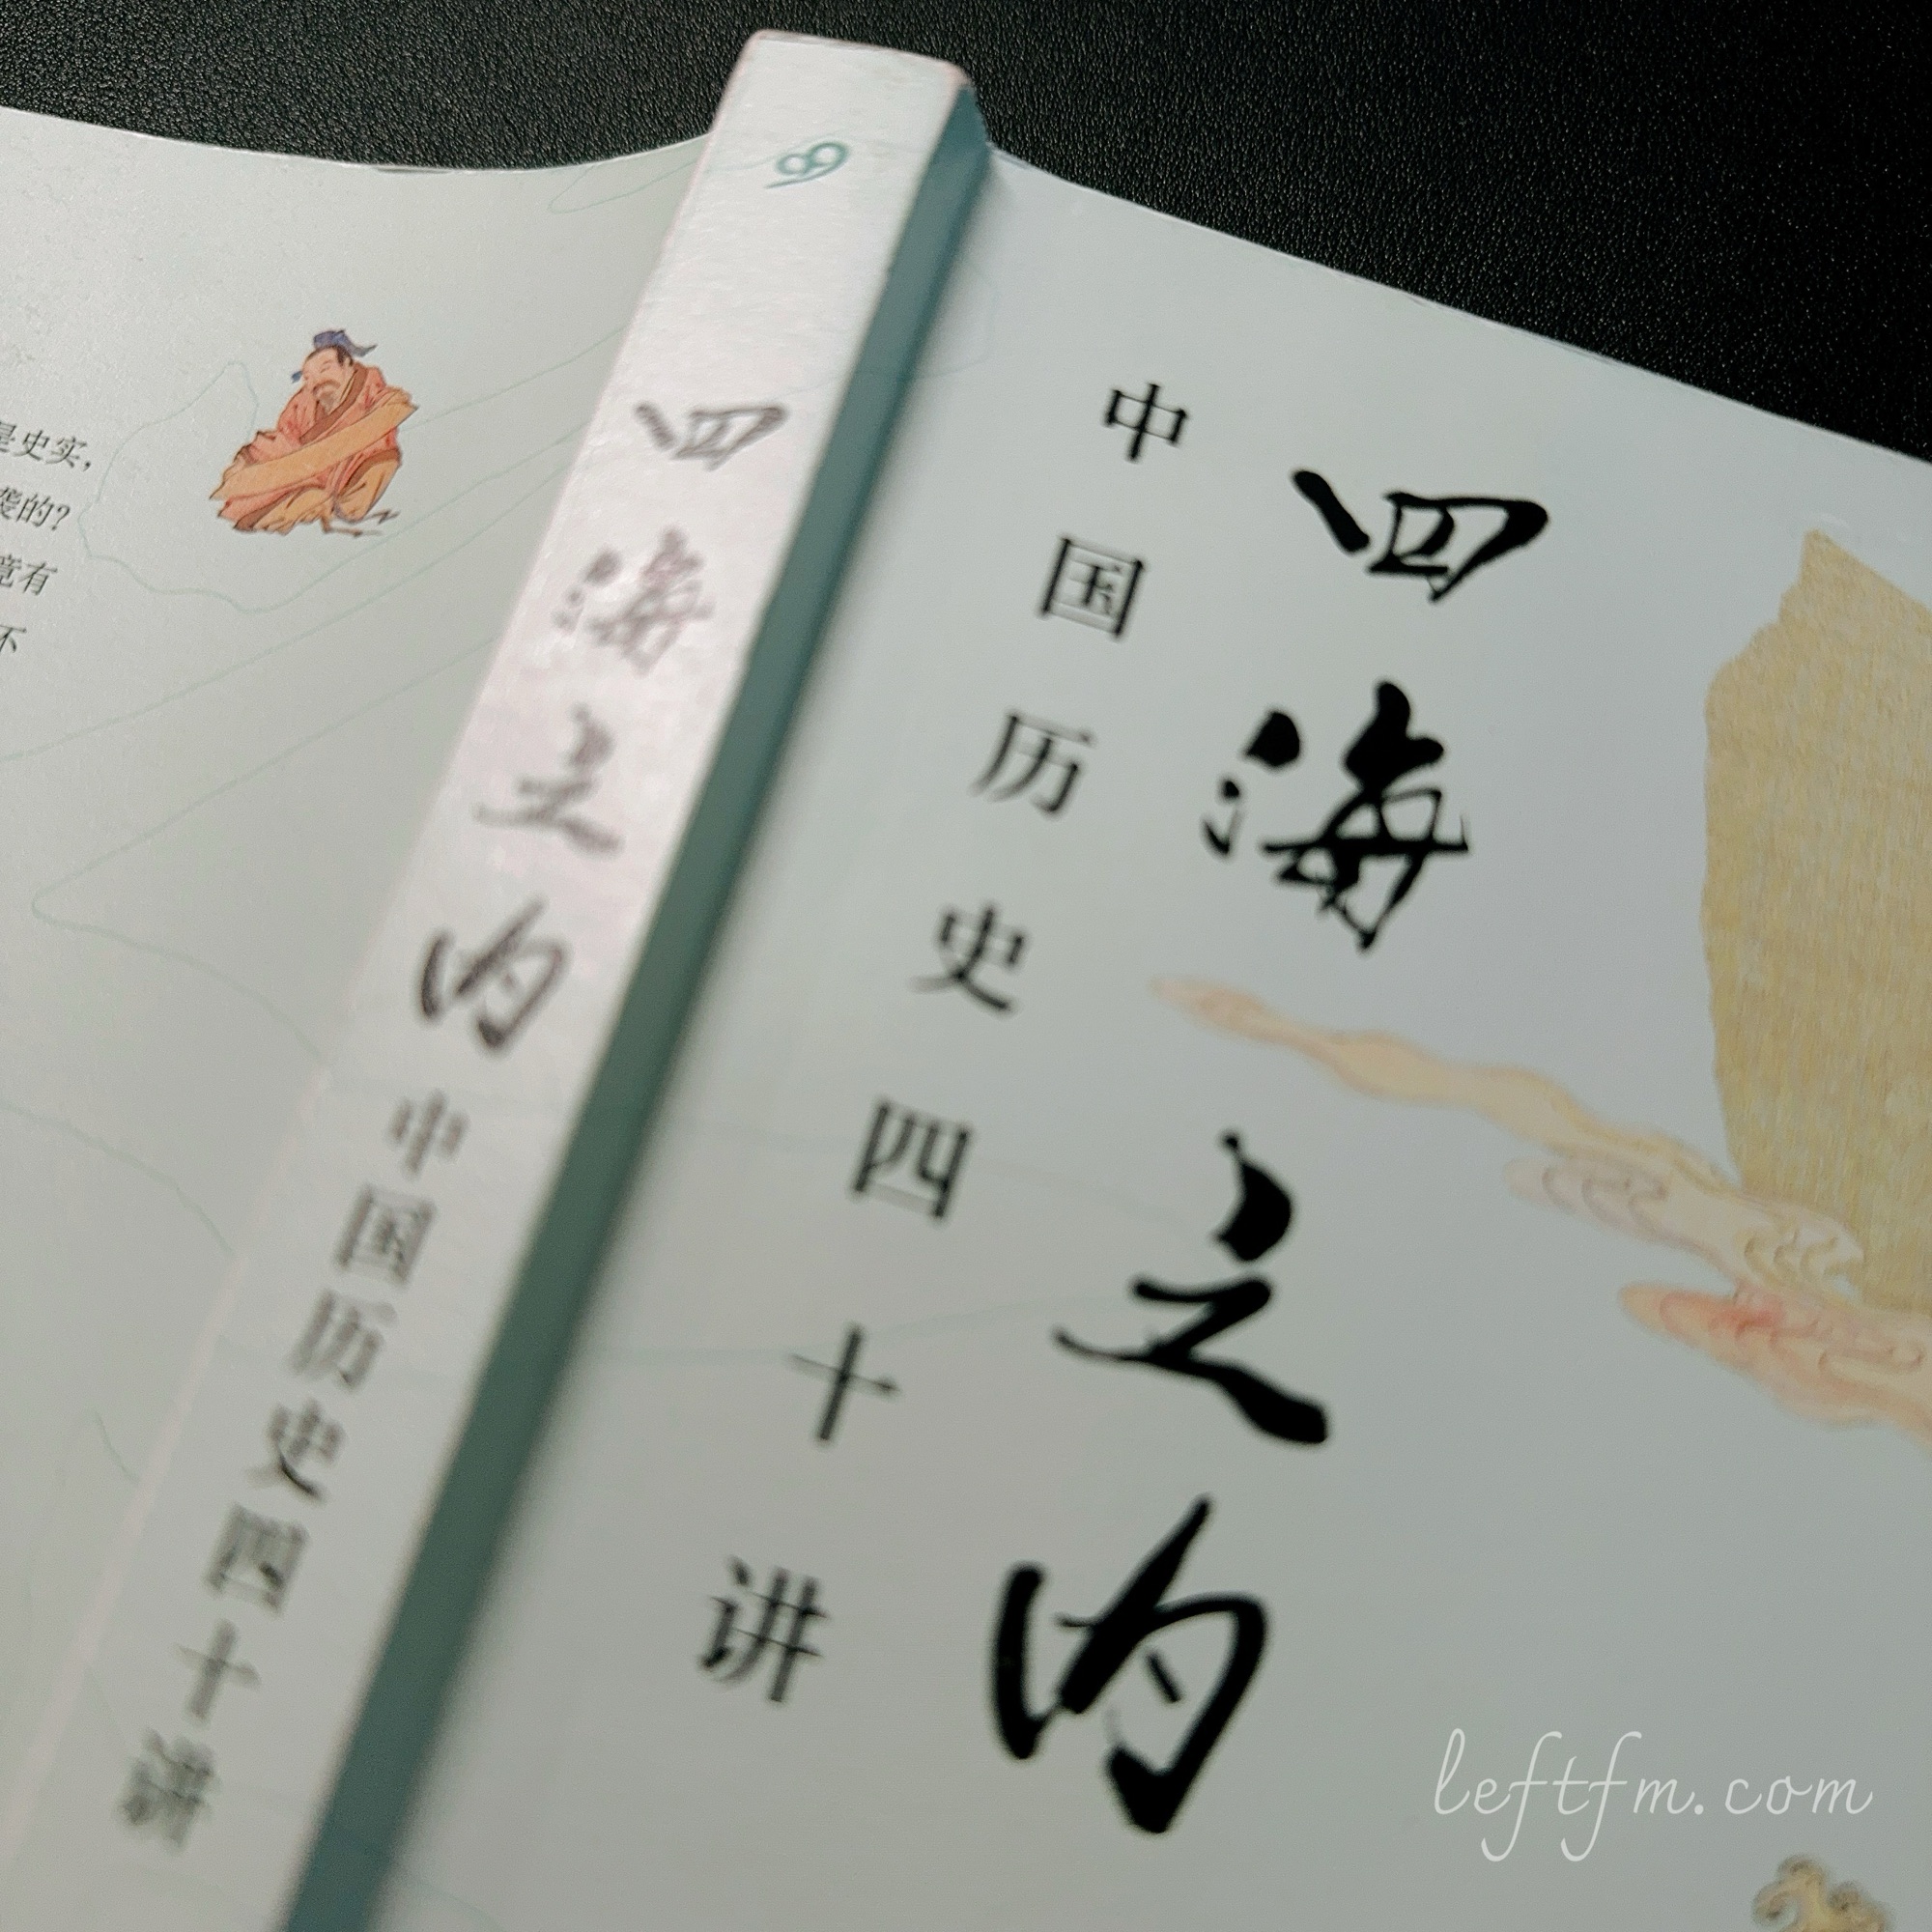 四海之内
中国历史四十讲
四海之内 中国历史四十讲
是史实，
袭的？
竟有
不
leftfm.com